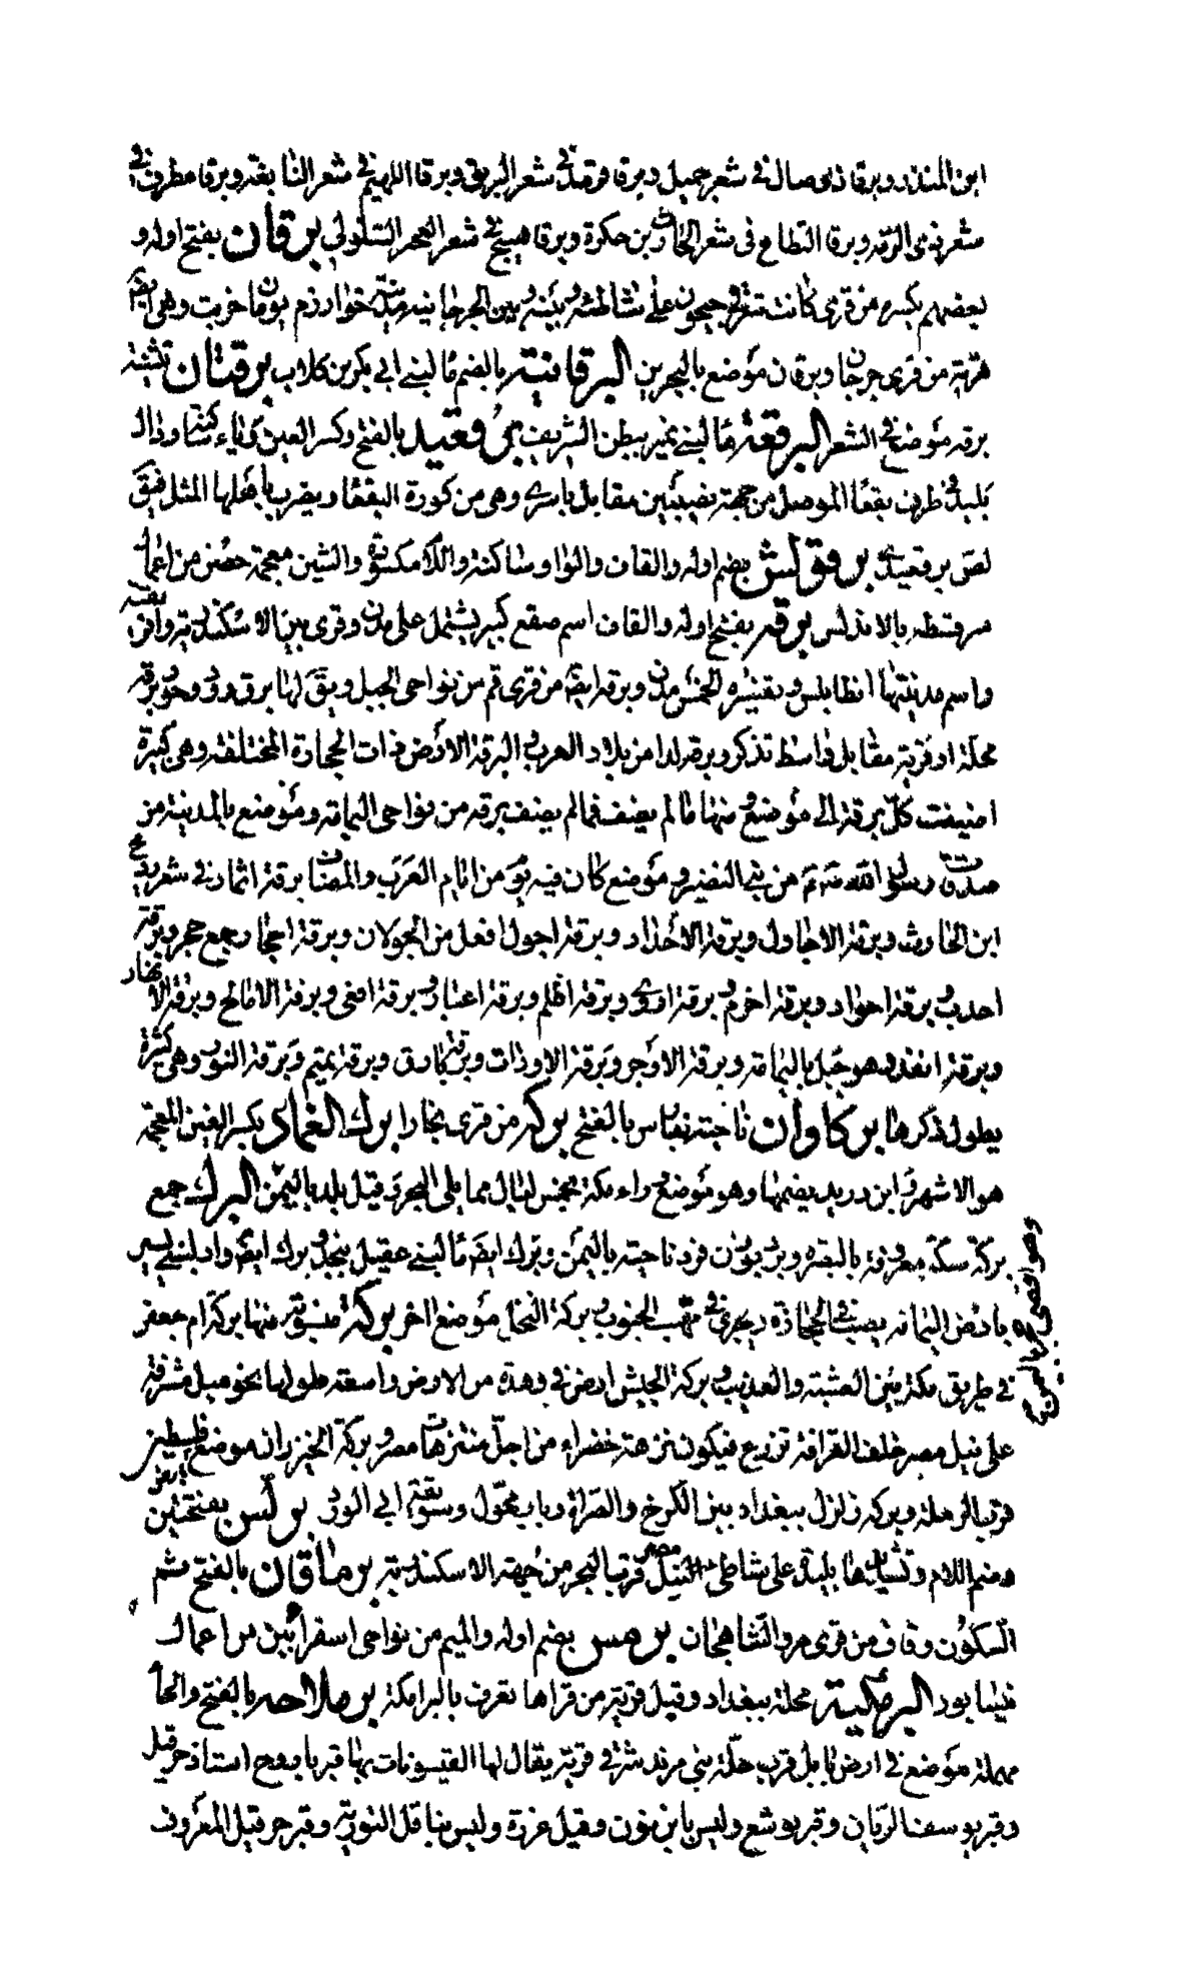 ابن المنذر وبرقا ذى وصال في شعر جميل وبرقا فرقد في شعر البريق وبرقا اللهيم في شعر النابغة وبرقا مطرف في
شعر ذى الرمة وبرقا النطاع فى شعر الحارث بن حكزة وبرقا هيج في شعر العجير السلولي برقان بفتح اوله و
بعضهم يكسره من قرى كانت شرقي جيحون على شاطئه وبينه وبين الجرجانية مدينة خوارزم يومان خربت وهى ايضا
قرية من قرى جرجان وبرقان موضع بالبحرين البرقانية بالضم ما لبني ابي بكر بن كلاب برقتان تثنية
برقه موضع في الشعر البرقعة ما لبني نمير ببطن الشريف برقعيد بالفتح وكسر العين وياء ساكنة ودال
بليد في طرف بقعا الموصل من جهة نصيبين مقابل باشزى وهى من كورة البقعا ويضرب باهلها المثل فيق
لص برقعيدى برقولش بضم اوله والقاف والواو ساكنة واللام مكسورة والشين معجمة حصن من اعمال
سرقسطه بالاندلس برقه بفتح اوله والقاف اسم صقع كبير يشتمل على مدن وقرى بين الاسكندرية وافريقية
واسم مدينتها انطابلس وتفسيره الخمس مدن وبرقه ايضا من قرى قم من نواحى الجبل ويق لها برق رود وحوبرقه
محلة او قرية مقابل واسط تذكر وبرقه لدا من بلاد العرب والبرقة الارض ذات الحجارة المختلفه وهى كثيرة
اضيفت كل برقة الى موضع ومنها ما لم يضف فما لم يضف برقه من نواحى اليمامة وموضع بالمدينة من
صدقات رسول الله من بني النضير وموضع كان فيه يوم من ايام العرب والمضاف برقة اثماد في شعر رديح
ابن الحارث وبرقة الاجاول وبرقة الاجداد وبرقة اجول افعل من الجولان وبرقة احجار جمع حجر وبرقة
احدب وبرقة احواد وبرقة اخرم وبرقة اروى وبرقة اظلم وبرقة اعيار وبرقة افعى وبرقة الامالح وبرقة الانهار
وبرقة انقد وهو جبل باليمامة وبرقة الاوجر وبرقة الاودات وبرقة بارق وبرقة يميم وبرقة الثور وهى كثيرة
يطول ذكرها بركاوان ناحية بفارس بالفتح بركد من قرى بخارا برك الغماد بكسر الغين المعجمة
هو الاشهر وابن دريد يضمها وهو موضع وراء مكة بخمس ليال مما يلى البحر وقيل بلد باليمن البرك جمع
بركة سكة معروفة بالبصره باليمن وبرك ايضا ما لبني عقيل بنجد وبرك ايضا واد لبني قشير
بارض اليمامه يصب في المجازه ويجرى في مهب الجنوب وبركة النخل موضع اخر بركة منسوبة منها بركة ام جعفر
وهو اقصى
في طريق مكة بين المغيثة والعذيب وبركة الحبش ارض في وهدة من الارض واسعة طولها نحو ميل مشرفة
على نيل مصر خلف القرافة تزرع فيكون نزهة خضراء من اجل متنزهات مصر وبركة الخيزران موضع بفلسطين
قرب الرملة وبركة زلزل ببغداد بين الكرخ والصراة وباب محول وسويقة ابي الورد برلس بفتحتين
وضم اللام وتشديدها بليدة على شاطئ نيل مصر قرب البحر من جهة الاسكندرية برماقان بالفتح ثم
السكون وقاف من قرى مرو الشاهجان برمس بضم اوله والميم من نواحى اسفرائين من اعمال
نيسابور البرمكية محلة ببغداد وقيل قرية من قراها تعرف بالبرامكة برملاحه بالفتح والحا
مهملة موضع في ارض بابل قرب حلة بني مزيد شرقي قرية يقال لها القسونات بها قبر باروخ استاذ حزقيل
وقبر يوسف الربان وقبر يوشع وليس بابن نون وقيل عزرة وليس بناقل التورية وقبر حزقيل المعروف